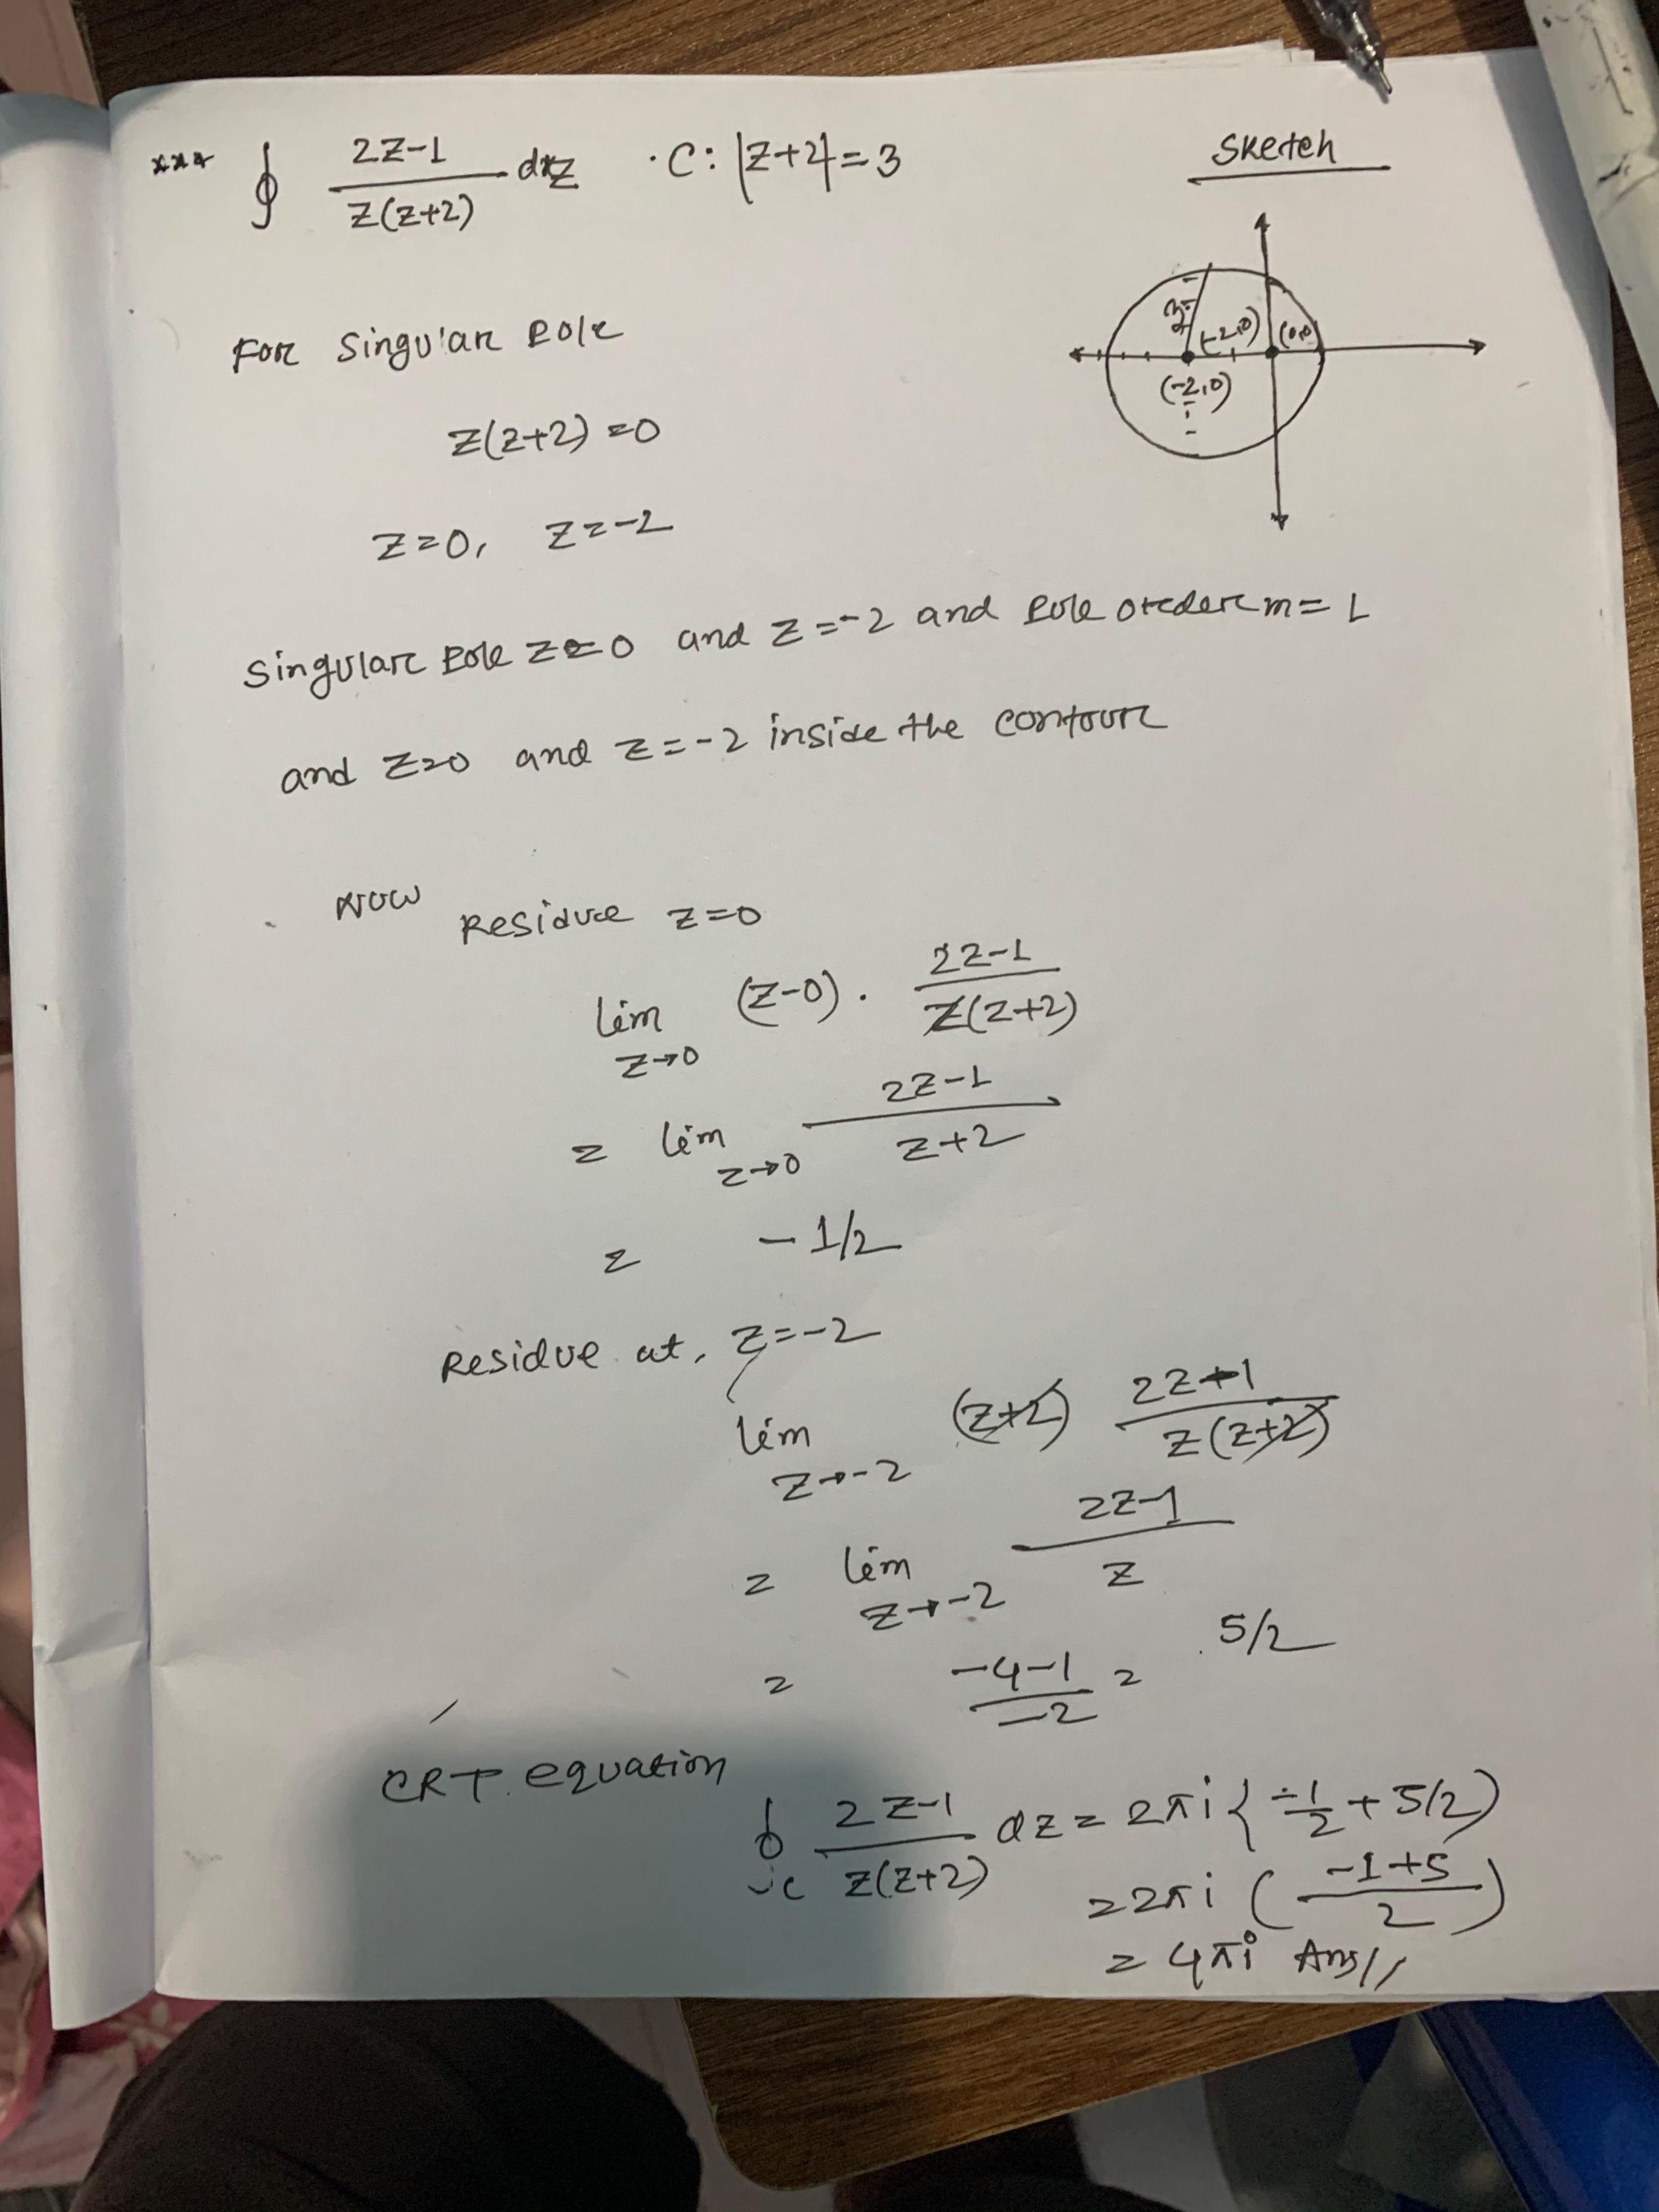 *** ∮ (2z-1)/(z(z+2)) dz · C: |z+2|=3
Sketch
3
(-2,0) (0,0)
(-2,0)
For Singular Pole
z(z+2) = 0
z=0, z=-2
Singular Pole z=0 and z=-2 and Pole order m=1
and z=0 and z=-2 inside the contour
Now Residue z=0
lim z→0 (z-0) · (2z-1)/(z(z+2))
= lim z→0 (2z-1)/(z+2)
= -1/2
Residue at, z=-2
lim z→-2 (z+2) (2z-1)/(z(z+2))
= lim z→-2 (2z-1)/z
= (-4-1)/(-2) = 5/2
CRT equation
∮c (2z-1)/(z(z+2)) dz = 2πi{-1/2 + 5/2)
= 2πi ((-1+5)/2)
= 4πi Ans//